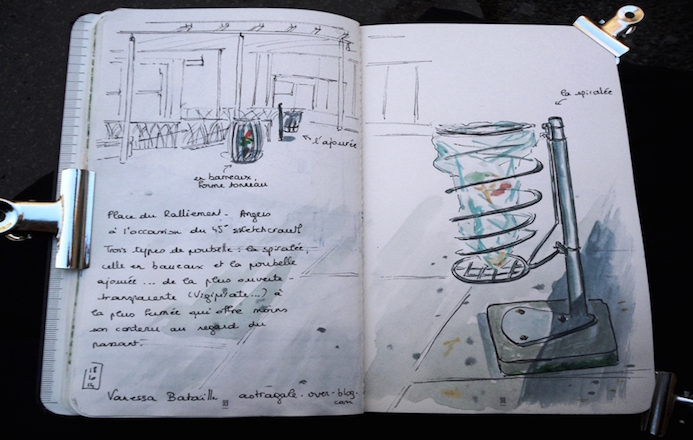 la spiralée
l'ajourée
en barreaux,
forme tonneau
Place du Ralliement - Angers
à l'occasion du 45e sketchcrawl
Trois types de poubelle : la spiralée,
celle en barreaux et la poubelle
ajourée ... de la plus ouverte -
transparente (Vigipirate...) à
la plus fermée qui offre moins
son contenu au regard du
passant.
18
Vanessa Bataille astragale.over-blog.
com